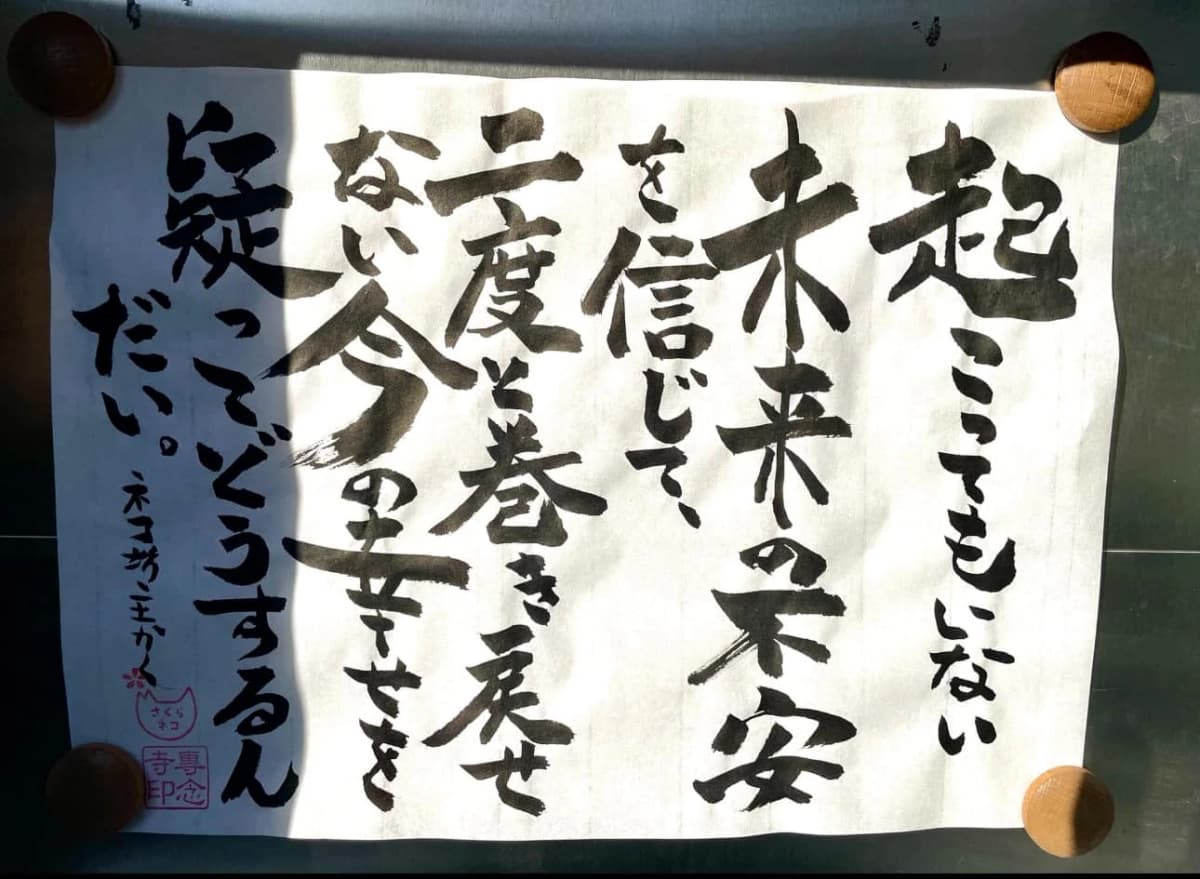 起こってもいない
未来の不安
を信じて、
二度と巻き戻せ
ない今の幸せを
疑ってどうするん
だい。
ネコ坊主かく
さくら
ネコ
専念
寺印